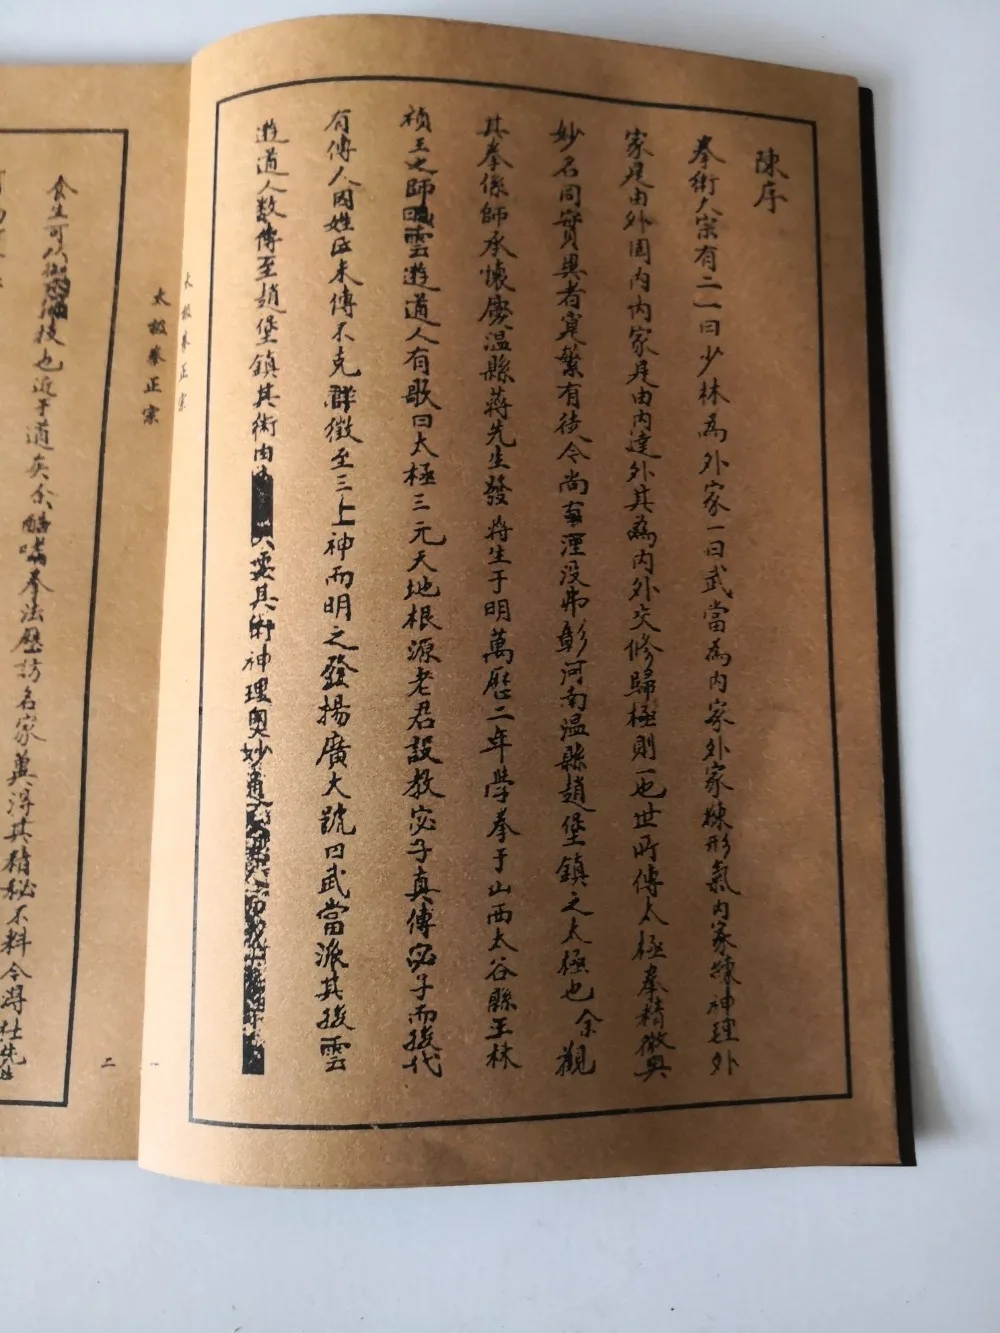 陳序
拳術大宗有二一曰少林為外家一曰武當為内家外家練形氣内家練神理外
家是由外固内内家是由内達外其為内外交修歸極則一也世所傳太極拳精微奥
妙名同實異者寔繁有徒今尚有湮没弗彰河南温縣趙堡鎮之太極也余觀
其拳係師承懷慶温縣蔣先生發蔣生于明萬歷二年學拳于山西太谷縣王林
禎王之師曰雲遊道人有歌曰太極三元天地根源老君設教宓子真傳宓子而後代
有傳人因姓氏未傳不克詳徵至三丰神而明之發揚廣大號曰武當派其後雲
遊道人数傳至趙堡鎮其術由 其術神理奥妙
太極拳正宗
一
太極拳正宗
二
食生可以 技也近于道矣余酷嗜拳法歷訪名家冀得其精秘不料今得杜先生